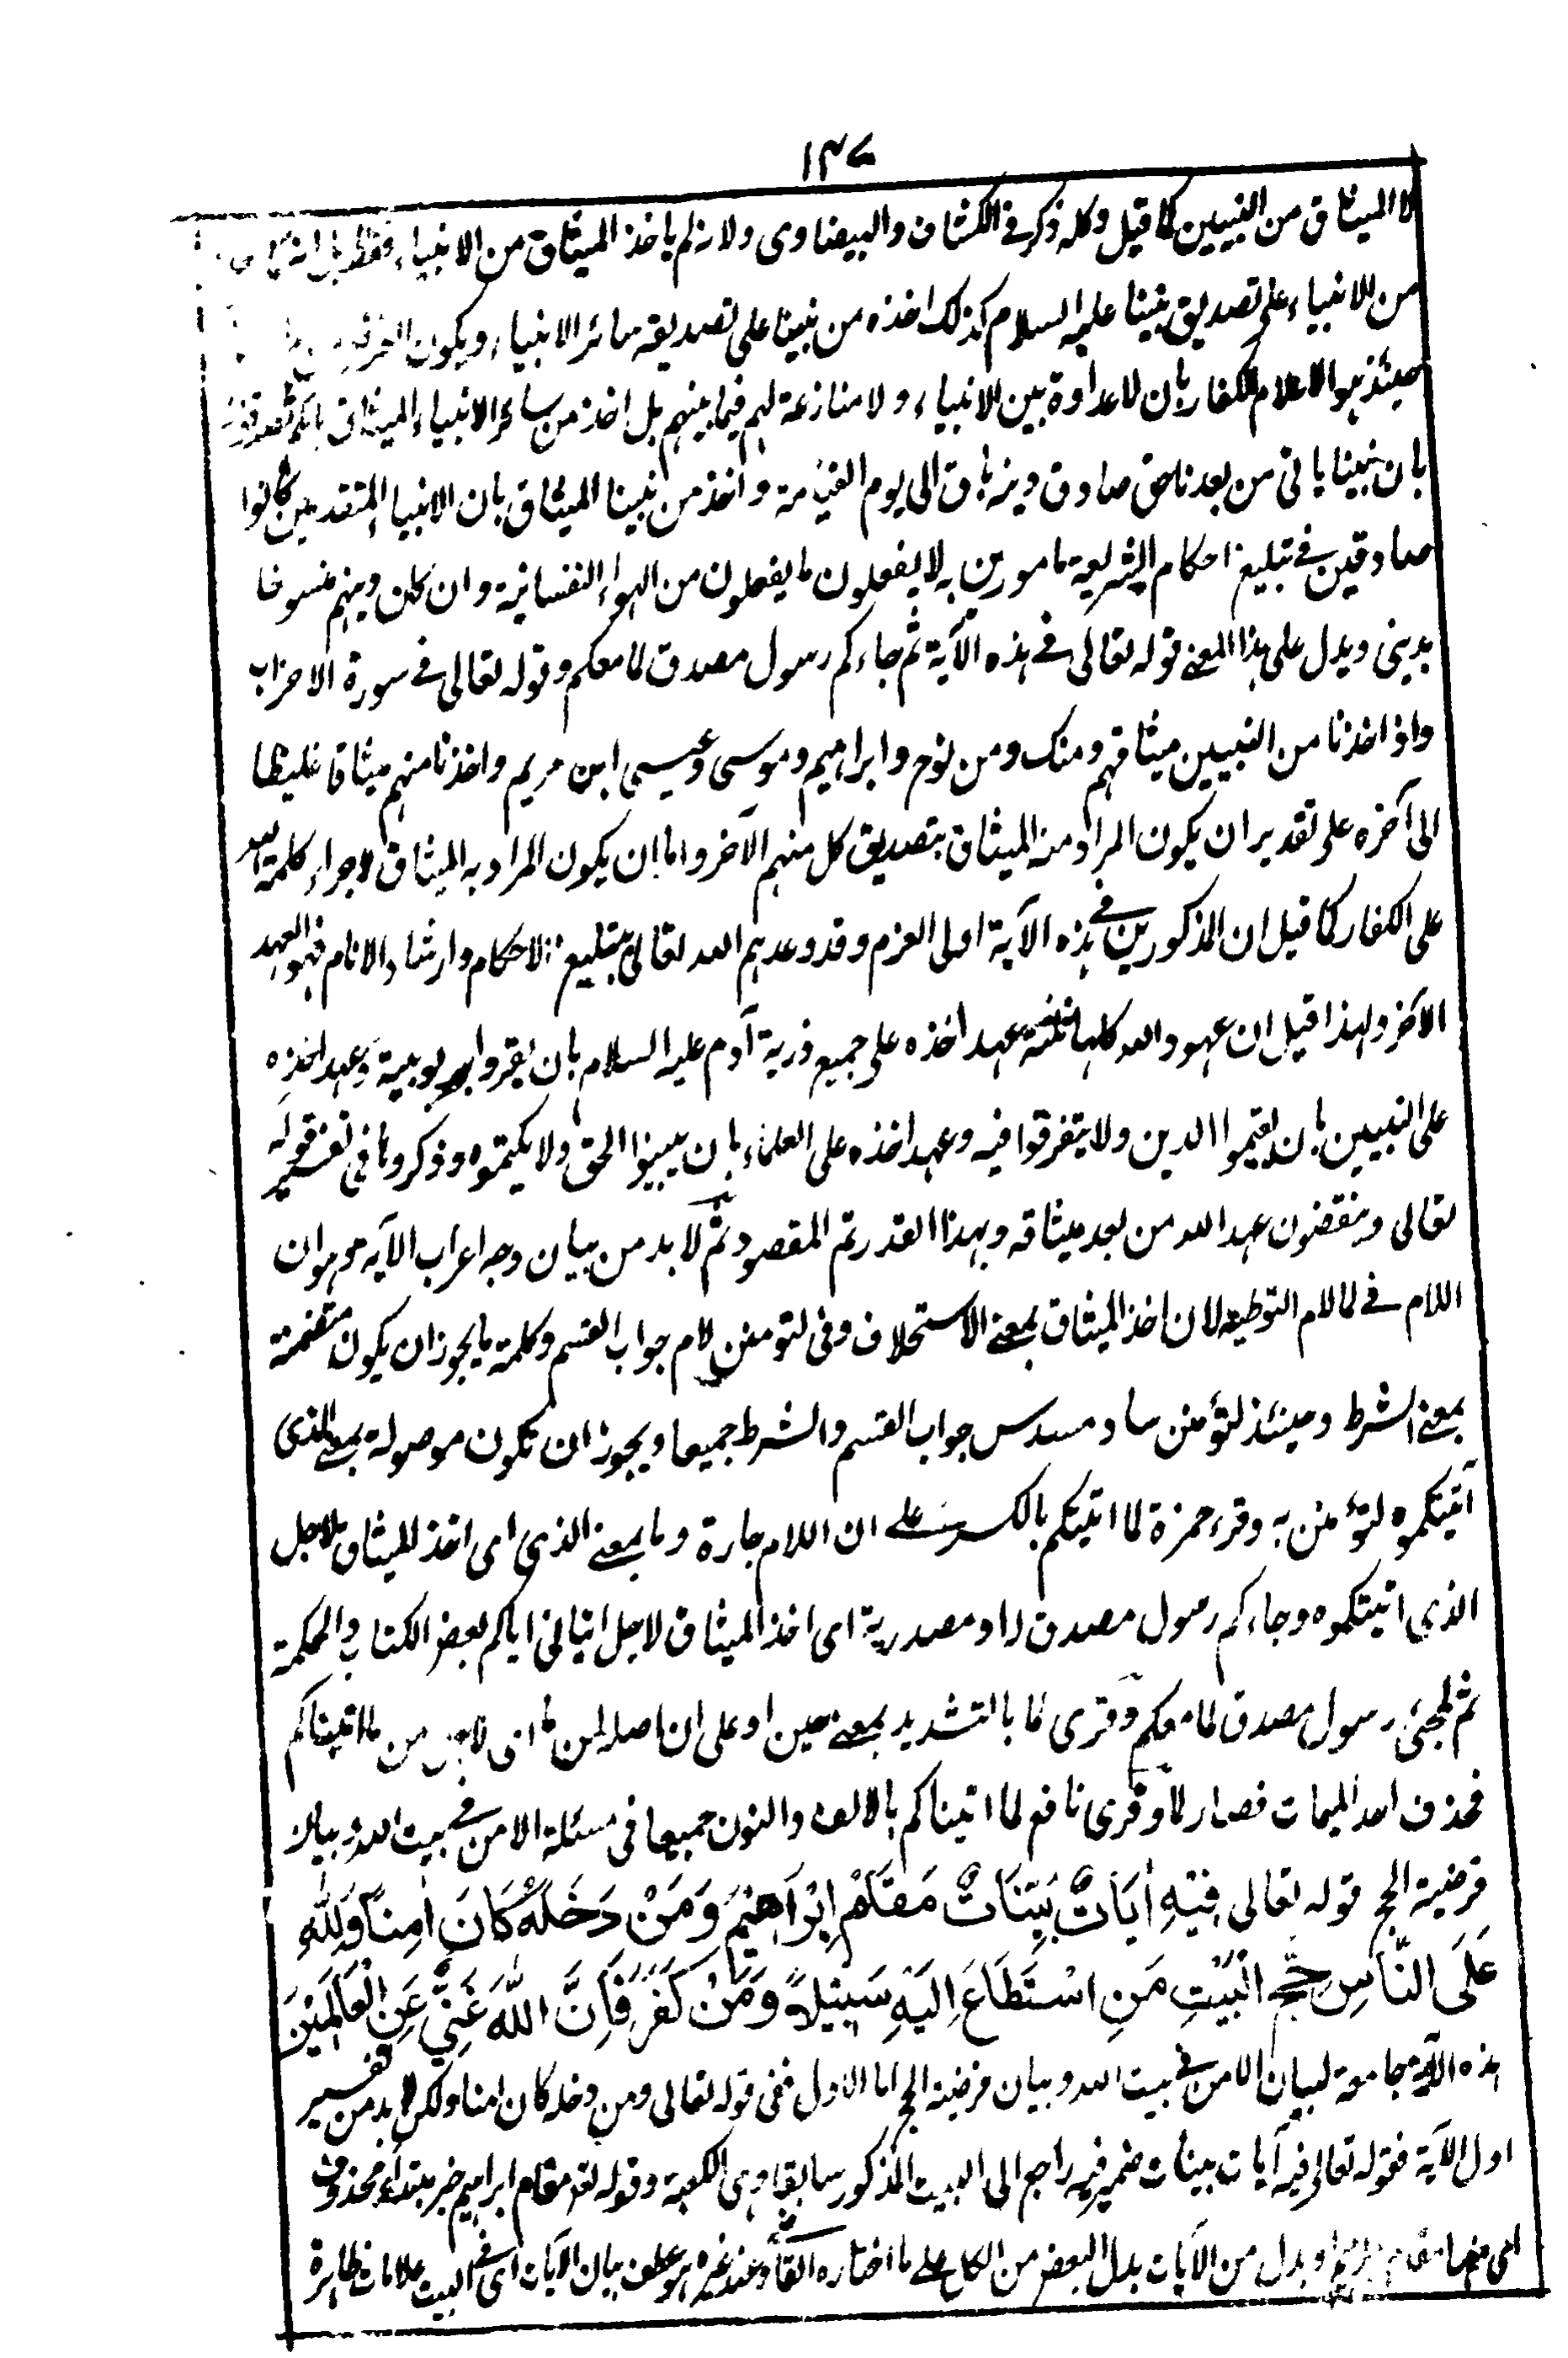 ١٣٧
لا الميثاق من النبيين كما قيل وكله ذكر في الكشاف والبيضاوى ولانه لم ياخذ الميثاق من الانبياء فقط بل انه كما
من الانبياء على تصديق نبينا عليه السلام كذلك اخذه من نبينا على تصديقه سائر الانبياء ويكون الغرض
حينئذ هو الاعلام للكفار بان لا عداوة بين الانبياء ولا منازعة لهم فيما بينهم بل اخذ من سائر الانبياء الميثاق بانكم تصدقون
بان نبينا ياتى من بعدنا حق صادق دينه باق الى يوم القيامة واخذ من نبينا الميثاق بان الانبياء المتقدمين كانوا
صادقين في تبليغ احكام الشريعة مامورين به لا يفعلون ما يفعلون من الهواء النفسانية وان كان دينهم منسوخا
بدينى ويدل على هذا المعنے قوله تعالى في هذه الآية ثم جاءكم رسول مصدق لما معكم وقوله تعالى في سورة الاحزاب
واذ اخذنا من النبيين ميثاقهم ومنك ومن نوح وابراهيم وموسى وعيسى ابن مريم واخذنا منهم ميثاقا غليظا
الى آخره على تقدير ان يكون المراد منه الميثاق بتصديق كل منهم الآخر واما ان يكون المراد به الميثاق لاجراء كلمة الله
على الكفار كما قيل ان المذكورين في هذه الآية اولى العزم وقد وعدهم الله تعالى بتبليغ الاحكام وارشاد الانام فهو العهد
الآخر ولهذا قيل ان عهود الله كلها ثلثة عهد اخذه على جميع ذرية آدم عليه السلام بان يقروا بربوبية وعهد اخذه
على النبيين بان يقيموا الدين ولا يتفرقوا فيه وعهد اخذه على العلماء بان يبينوا الحق ولا يكتموه وذكروها في تفسير قوله
تعالى وينقضون عهد الله من بعد ميثاقه وبهذا القدر تم المقصود ثم لا بد من بيان وجه اعراب الآية وهو ان
اللام في لما لام التوطية لان اخذ الميثاق بمعنے الاستحلاف وفى لتومنن لام جواب القسم وكلمة ما يجوز ان يكون متضمنة
بمعنے الشرط وحينئذ لتؤمنن ساد مسدس جواب القسم والشرط جميعا ويجوز ان تكون موصولة بمعنے الذى
آتيتكموه لتؤمنن به وقرء حمزة لما اتيتكم بالكسر علے ان اللام جارة وما بمعنے الذى اى اخذ الميثاق لاجل
الذى اتيتكموه وجاءكم رسول مصدق له او مصدرية اى اخذ الميثاق لاجل ايتائى اياكم بعض الكتاب والحكمة
ثم لمجئ رسول مصدق لما معكم وقرى لما بالتشديد بمعنے حين او على ان اصله لمن ما اى لاجل من ما اتيناكم
فحذف احد الميمات فصار لما وقرى نافع لما اتيناكم بالالف والنون جميعا فى مسئلة الامن في بيت الله وبيان
فرضية الحج قوله تعالى فِيْهِ اٰيَاتٌ بَيِّنَاتٌ مَقَامُ اِبْرَاهِيْمَ وَمَنْ دَخَلَهٗ كَانَ اٰمِنًا وَلِلّٰهِ
عَلَى النَّاسِ حِجُّ الْبَيْتِ مَنِ اسْتَطَاعَ اِلَيْهِ سَبِيْلًا وَمَنْ كَفَرَ فَاِنَّ اللّٰهَ غَنِيٌّ عَنِ الْعَالَمِيْنَ
هذه الآية جامعة لبيان الامن في بيت الله وبيان فرضية الحج اما الاول ففى قوله تعالى ومن دخله كان امنا ولكن لا بد من تفسير
اول الآية فقوله تعالى فيه آيات بينات ضمير فيه راجع الى البيت المذكور سابقا وهى الكعبة وقوله تعم مقام ابراهيم خبر مبتداء محذوف
اى منها مقام ابراهيم او بدل من الآيات بدل البعض من الكل علے ما اختاره القاضى وعند غيره هو عطف بيان الآيات اى في البيت علامات ظاهرة